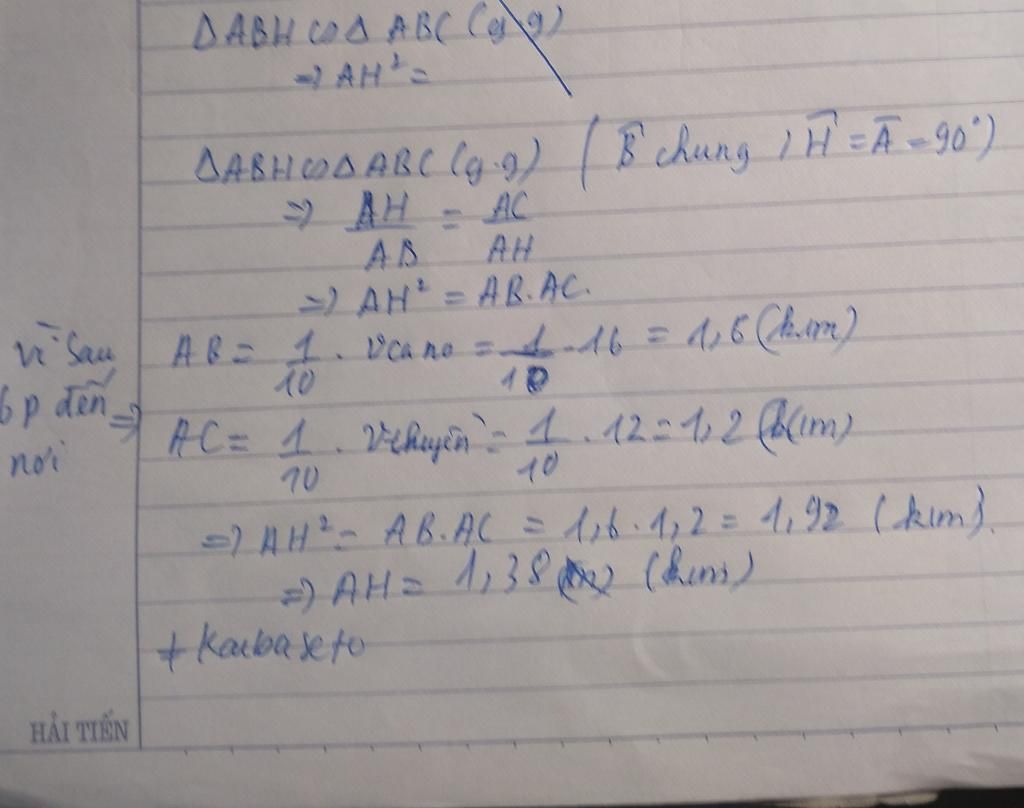 ΔABH ∽ Δ ABC (g.g)
=> AH² =
ΔABH ∽ ΔABC (g.g) ( B̂ chung , Ĥ = Â = 90°)
=> AH/AB = AC/AH
=> AH² = AB.AC.
Vì sau
6p đến =>
nơi
AB = 1/10 . Vcano = 1/10 . 16 = 1,6 (km)
AC = 1/10 . Vthuyền = 1/10 . 12 = 1,2 (km)
=> AH² = AB.AC = 1,6 . 1,2 = 1,92 (km).
=> AH = 1,38 (km)
HẢI TIẾN